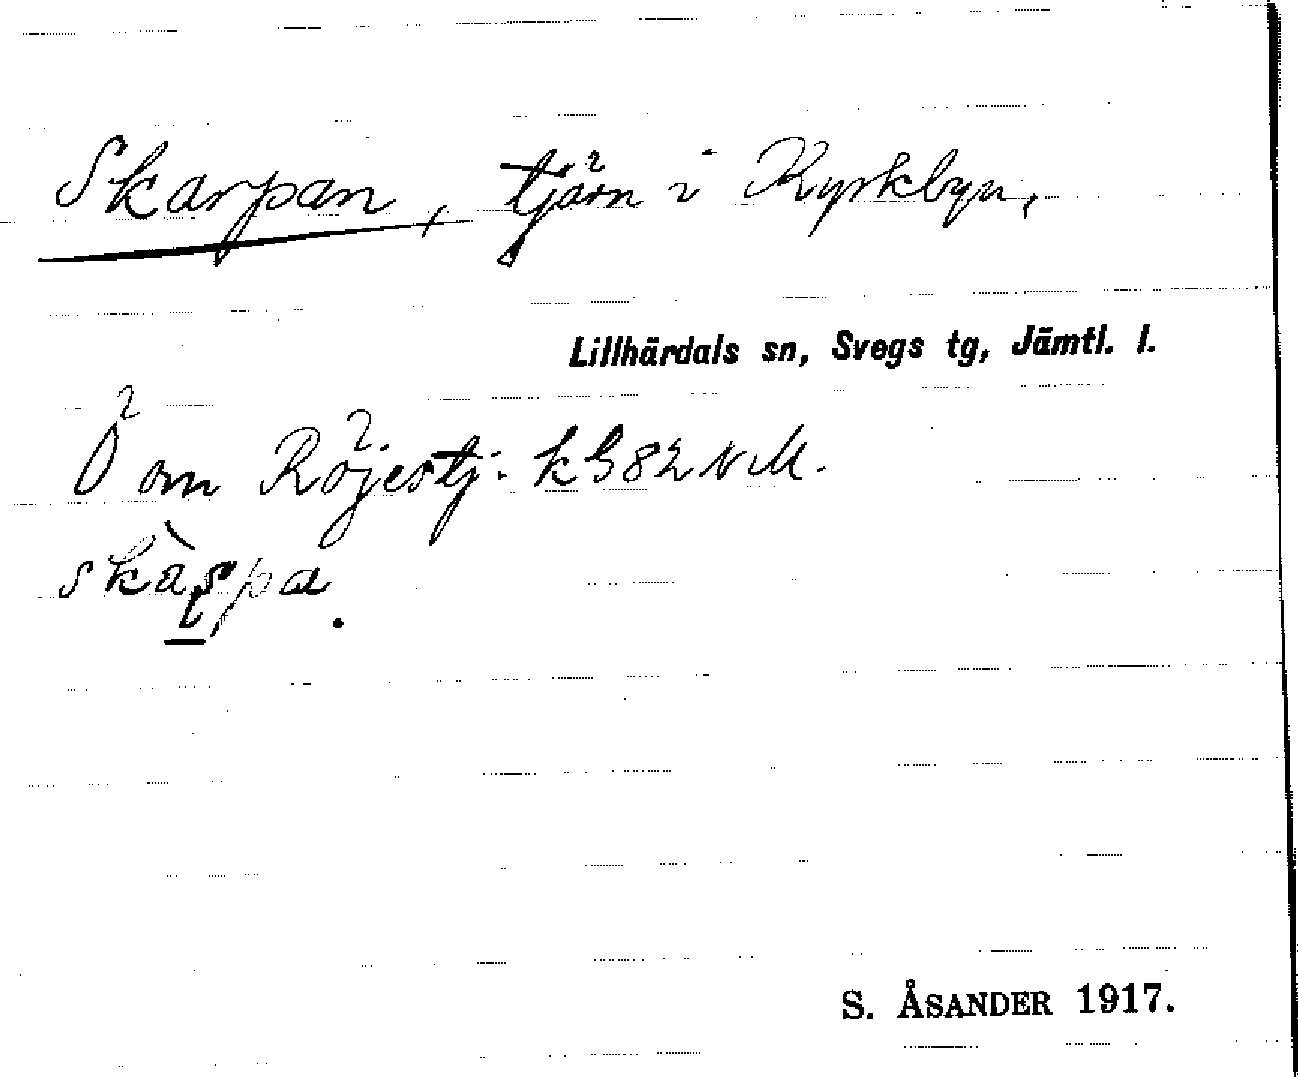 Skarpan, tjärn i Kyrkbyn,
Lillhärdals sn, Svegs tg, Jämtl. l.
Ö om Röjestj. k G 82 N M.
S. ÅSANDER 1917.